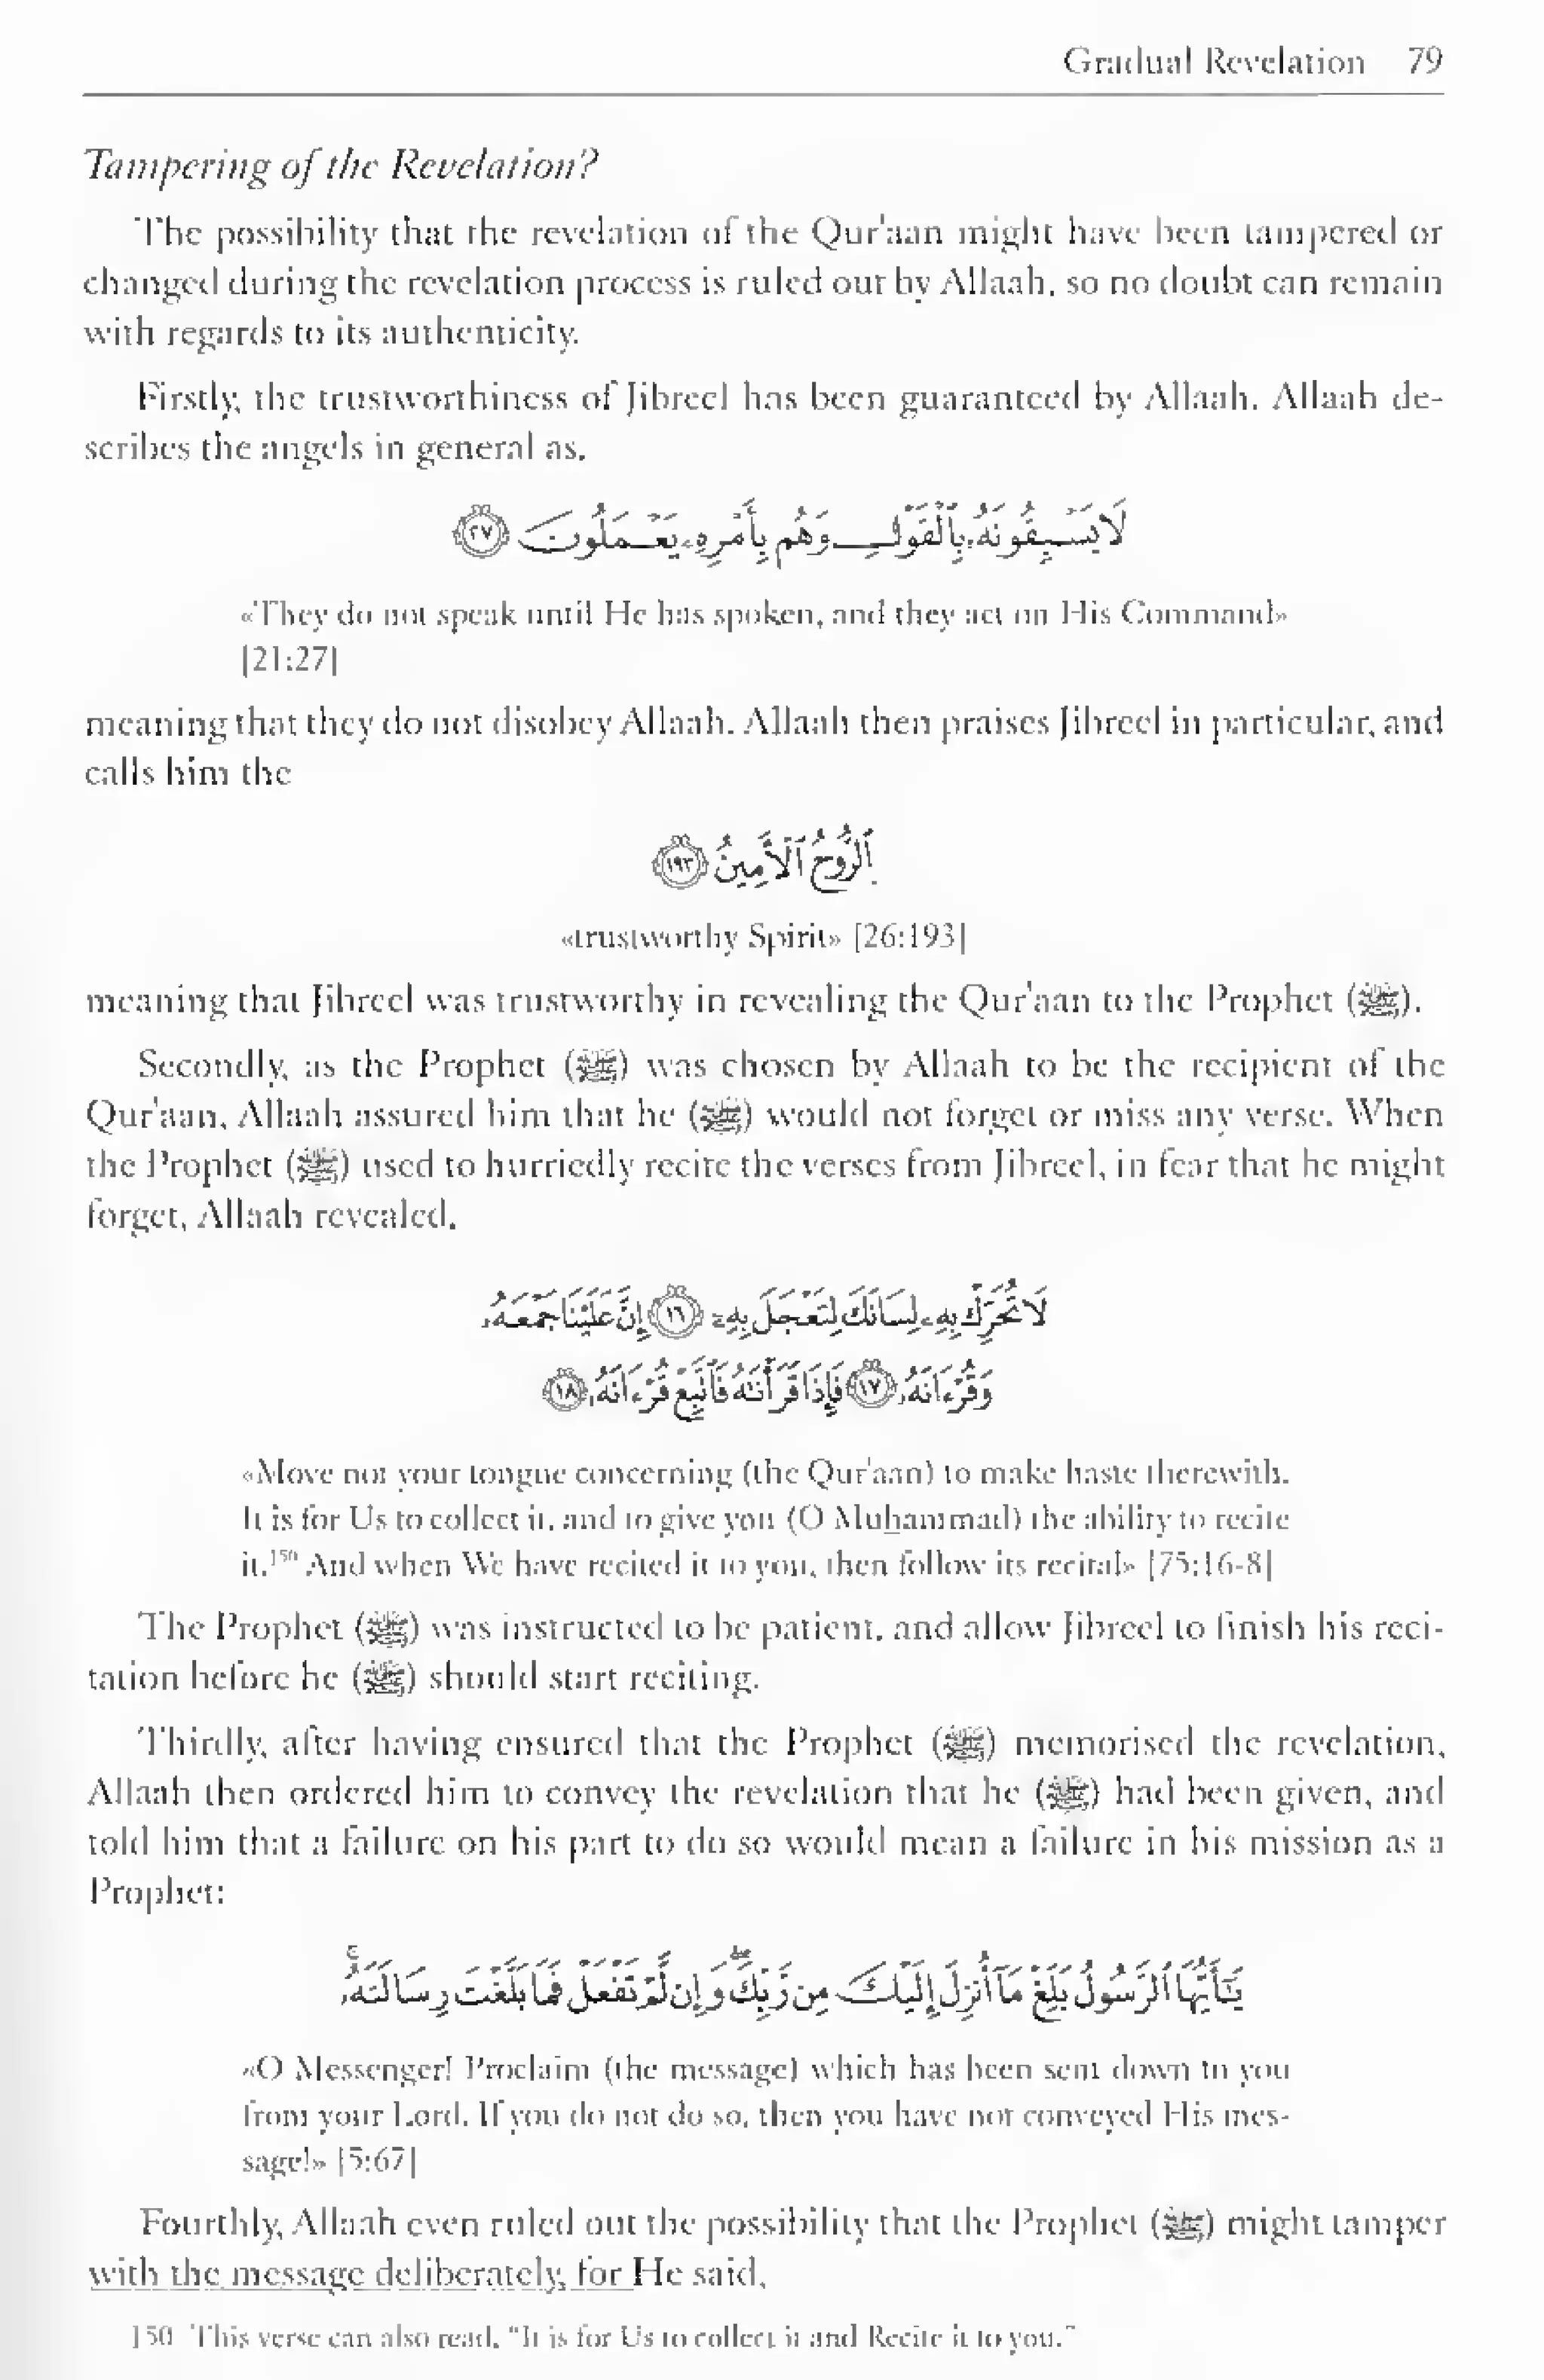 Gradual Revelation 79
Tampering of the Revelation?
The possibility that the revelation of the Qur'aan might have been tampered or
changed during the revelation process is ruled out by Allaah, so no doubt can remain
with regards to its authenticity.
Firstly, the trustworthiness of Jibreel has been guaranteed by Allaah. Allaah de-
scribes the angels in general as,
لَا يَسْبِقُونَهُۥ بِٱلْقَوْلِ وَهُم بِأَمْرِهِۦ يَعْمَلُونَ ٢٧
«They do not speak until He has spoken, and they act on His Command»
[21:27]
meaning that they do not disobey Allaah. Allaah then praises Jibreel in particular, and
calls him the
ٱلرُّوحُ ٱلْأَمِينُ ١٩٣
«trustworthy Spirit» [26:193]
meaning that Jibreel was trustworthy in revealing the Qur'aan to the Prophet (ﷺ).
Secondly, as the Prophet (ﷺ) was chosen by Allaah to be the recipient of the
Qur'aan, Allaah assured him that he (ﷺ) would not forget or miss any verse. When
the Prophet (ﷺ) used to hurriedly recite the verses from Jibreel, in fear that he might
forget, Allaah revealed,
لَا تُحَرِّكْ بِهِۦ لِسَانَكَ لِتَعْجَلَ بِهِۦٓ ١٦ إِنَّ عَلَيْنَا جَمْعَهُۥ
وَقُرْءَانَهُۥ ١٧ فَإِذَا قَرَأْنَٰهُ فَٱتَّبِعْ قُرْءَانَهُۥ ١٨
«Move not your tongue concerning (the Qur'aan) to make haste therewith.
It is for Us to collect it, and to give you (O Muhammad) the ability to recite
it.150 And when We have recited it to you, then follow its recital» [75:16-8]
The Prophet (ﷺ) was instructed to be patient, and allow Jibreel to finish his reci-
tation before he (ﷺ) should start reciting.
Thirdly, after having ensured that the Prophet (ﷺ) memorised the revelation,
Allaah then ordered him to convey the revelation that he (ﷺ) had been given, and
told him that a failure on his part to do so would mean a failure in his mission as a
Prophet:
يَٰٓأَيُّهَا ٱلرَّسُولُ بَلِّغْ مَآ أُنزِلَ إِلَيْكَ مِن رَّبِّكَ ۖ وَإِن لَّمْ تَفْعَلْ فَمَا بَلَّغْتَ رِسَالَتَهُۥ ۚ
«O Messenger! Proclaim (the message) which has been sent down to you
from your Lord. If you do not do so, then you have not conveyed His mes-
sage!» [5:67]
Fourthly, Allaah even ruled out the possibility that the Prophet (ﷺ) might tamper
with the message deliberately, for He said,
150 This verse can also read, "It is for Us to collect it and Recite it to you."